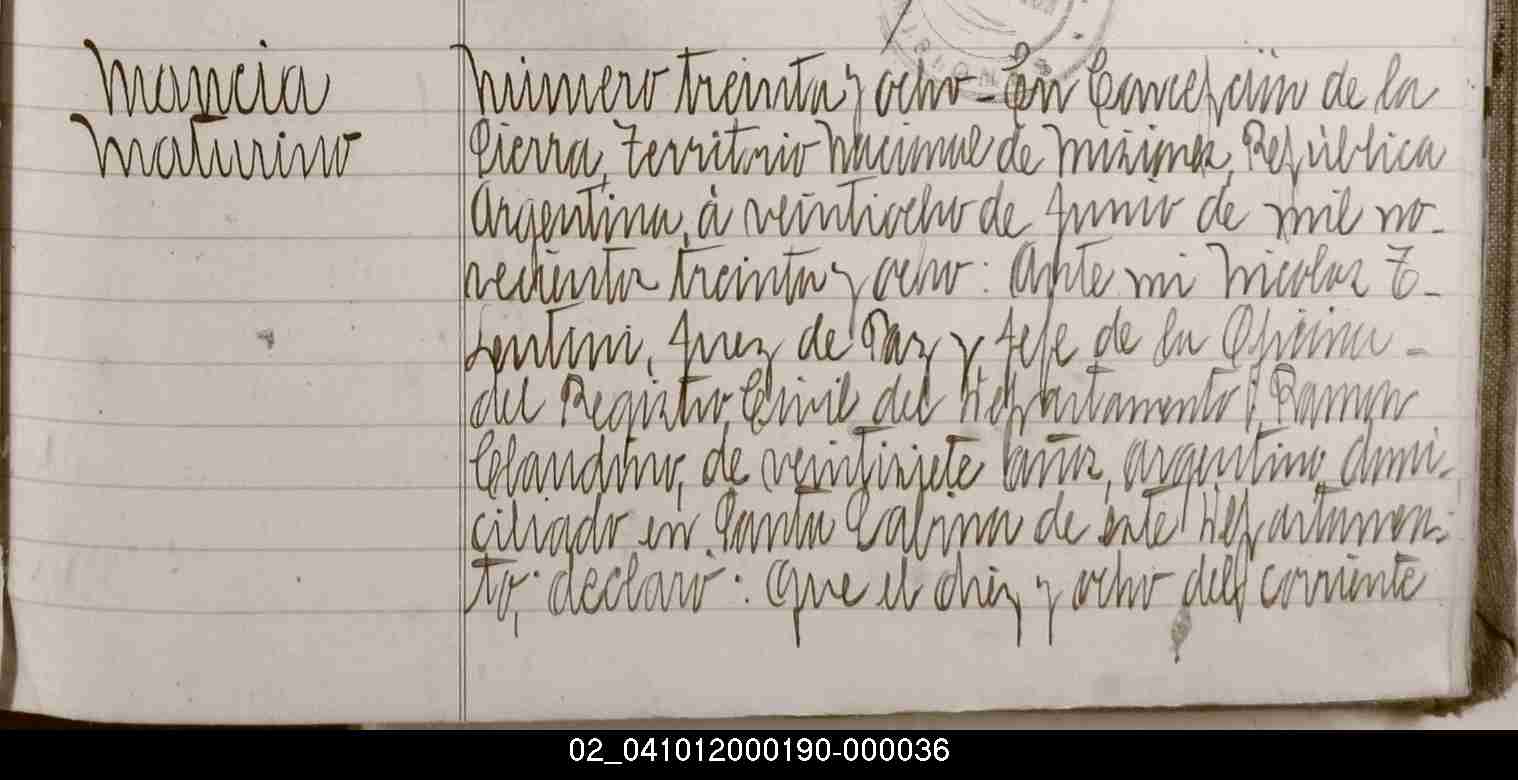 Mancia
Maturino
Número treinta y ocho - En Concepción de la
Sierra, Territorio Nacional de Misiones, República
Argentina, à veintiocho de Junio de mil no-
vecientos treinta y ocho: Ante mi Nicolas T.
Sentini, Juez de Paz y Jefe de la Oficina -
del Registro Civil del Departamento: Ramon
Claudino, de veintisiete años, argentino, domi-
ciliado en Santa de este Departamen-
to, declaró: Que el diez y ocho del corriente
02_041012000190-000036